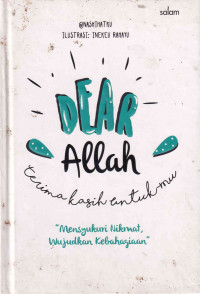 salam
@NASHIHATKU
ILUSTRASI: INEKEU RAHAYU
DEAR
Allah
terima kasih untuk-mu
"Mensyukuri Nikmat,
Wujudkan Kebahagiaan"